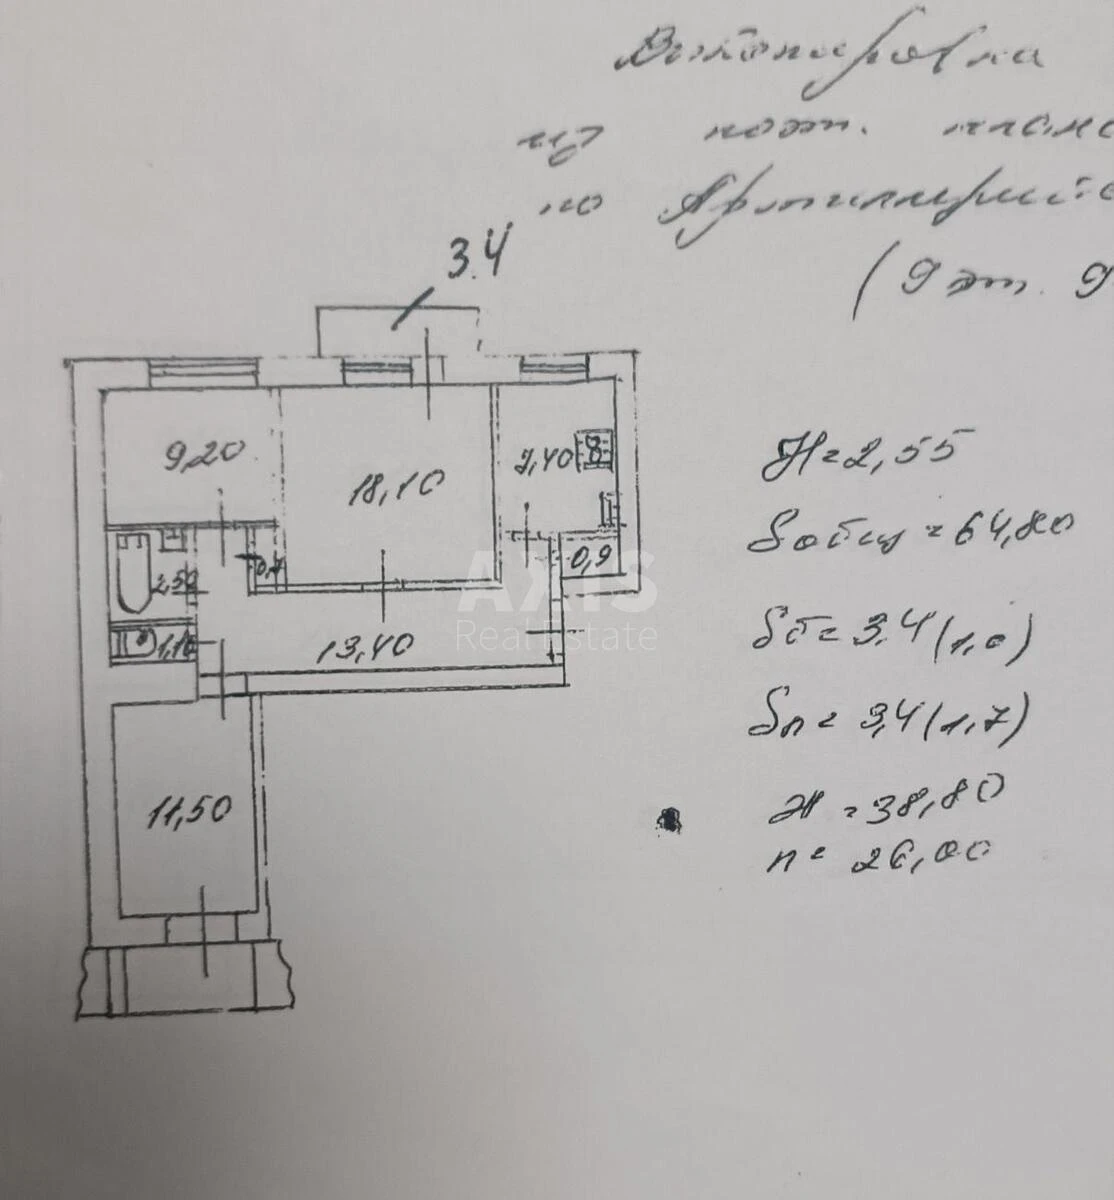 Выкопировка
из поэт. плана
по Артиллерийс
(9 эт. 9
3.4
9,20
18,10
7,40
0,9
2,50
0,7
1,10
13,40
11,50
H=2,55
Sобщ=64,80
Sб=3.4(1,0)
Sл=3,4(1,7)
Ж=38,80
п=26,00
AXIS
Real Estate